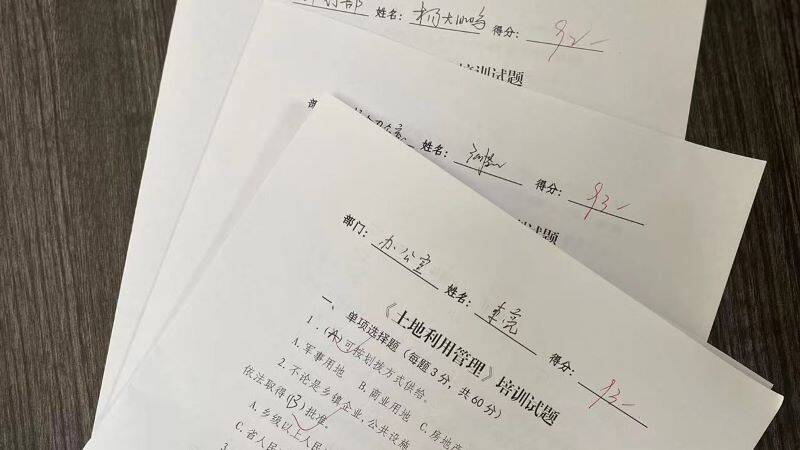 部 姓名： 得分：92
培训试题
部 姓名： 得分：93
试题
部门：办公室 姓名： 亮 得分：93
《土地利用管理》培训试题
一、单项选择题（每题3分，共60分）
1．(A)可按划拨方式供给。
A. 军事用地 B. 商业用地 C. 房地产
2. 不论是乡镇企业、公共设施
依法取得(B)批准。
A. 乡级以上人民
C. 省人民
3